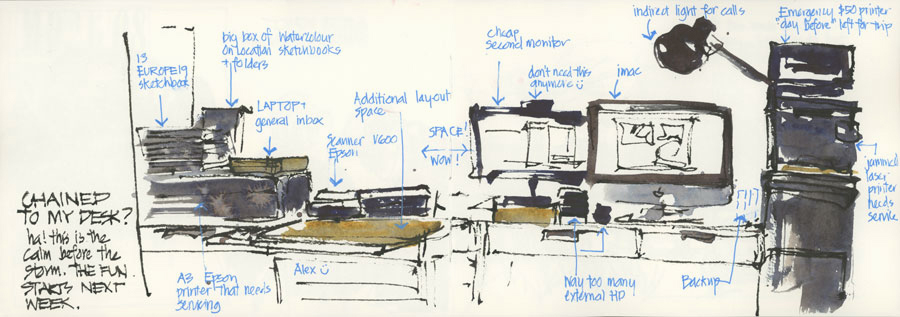 13
EUROPE19
sketchbook
big box of watercolour
on location sketchbooks
+ folders
LAPTOP +
general inbox
Scanner V600
Epson
Additional layout
space
SPACE!
WOW!
cheap
second monitor
don't need this
anymore
imac
indirect light for calls
Emergency $50 printer
"day before" left for trip
jammed
laser
printer
needs
service
CHAINED
TO MY DESK?
ha! this is the
calm before the
storm. THE FUN
STARTS NEXT
WEEK.
A3 Epson
printer that needs
servicing
Alex
Way too many
external HD
Backup